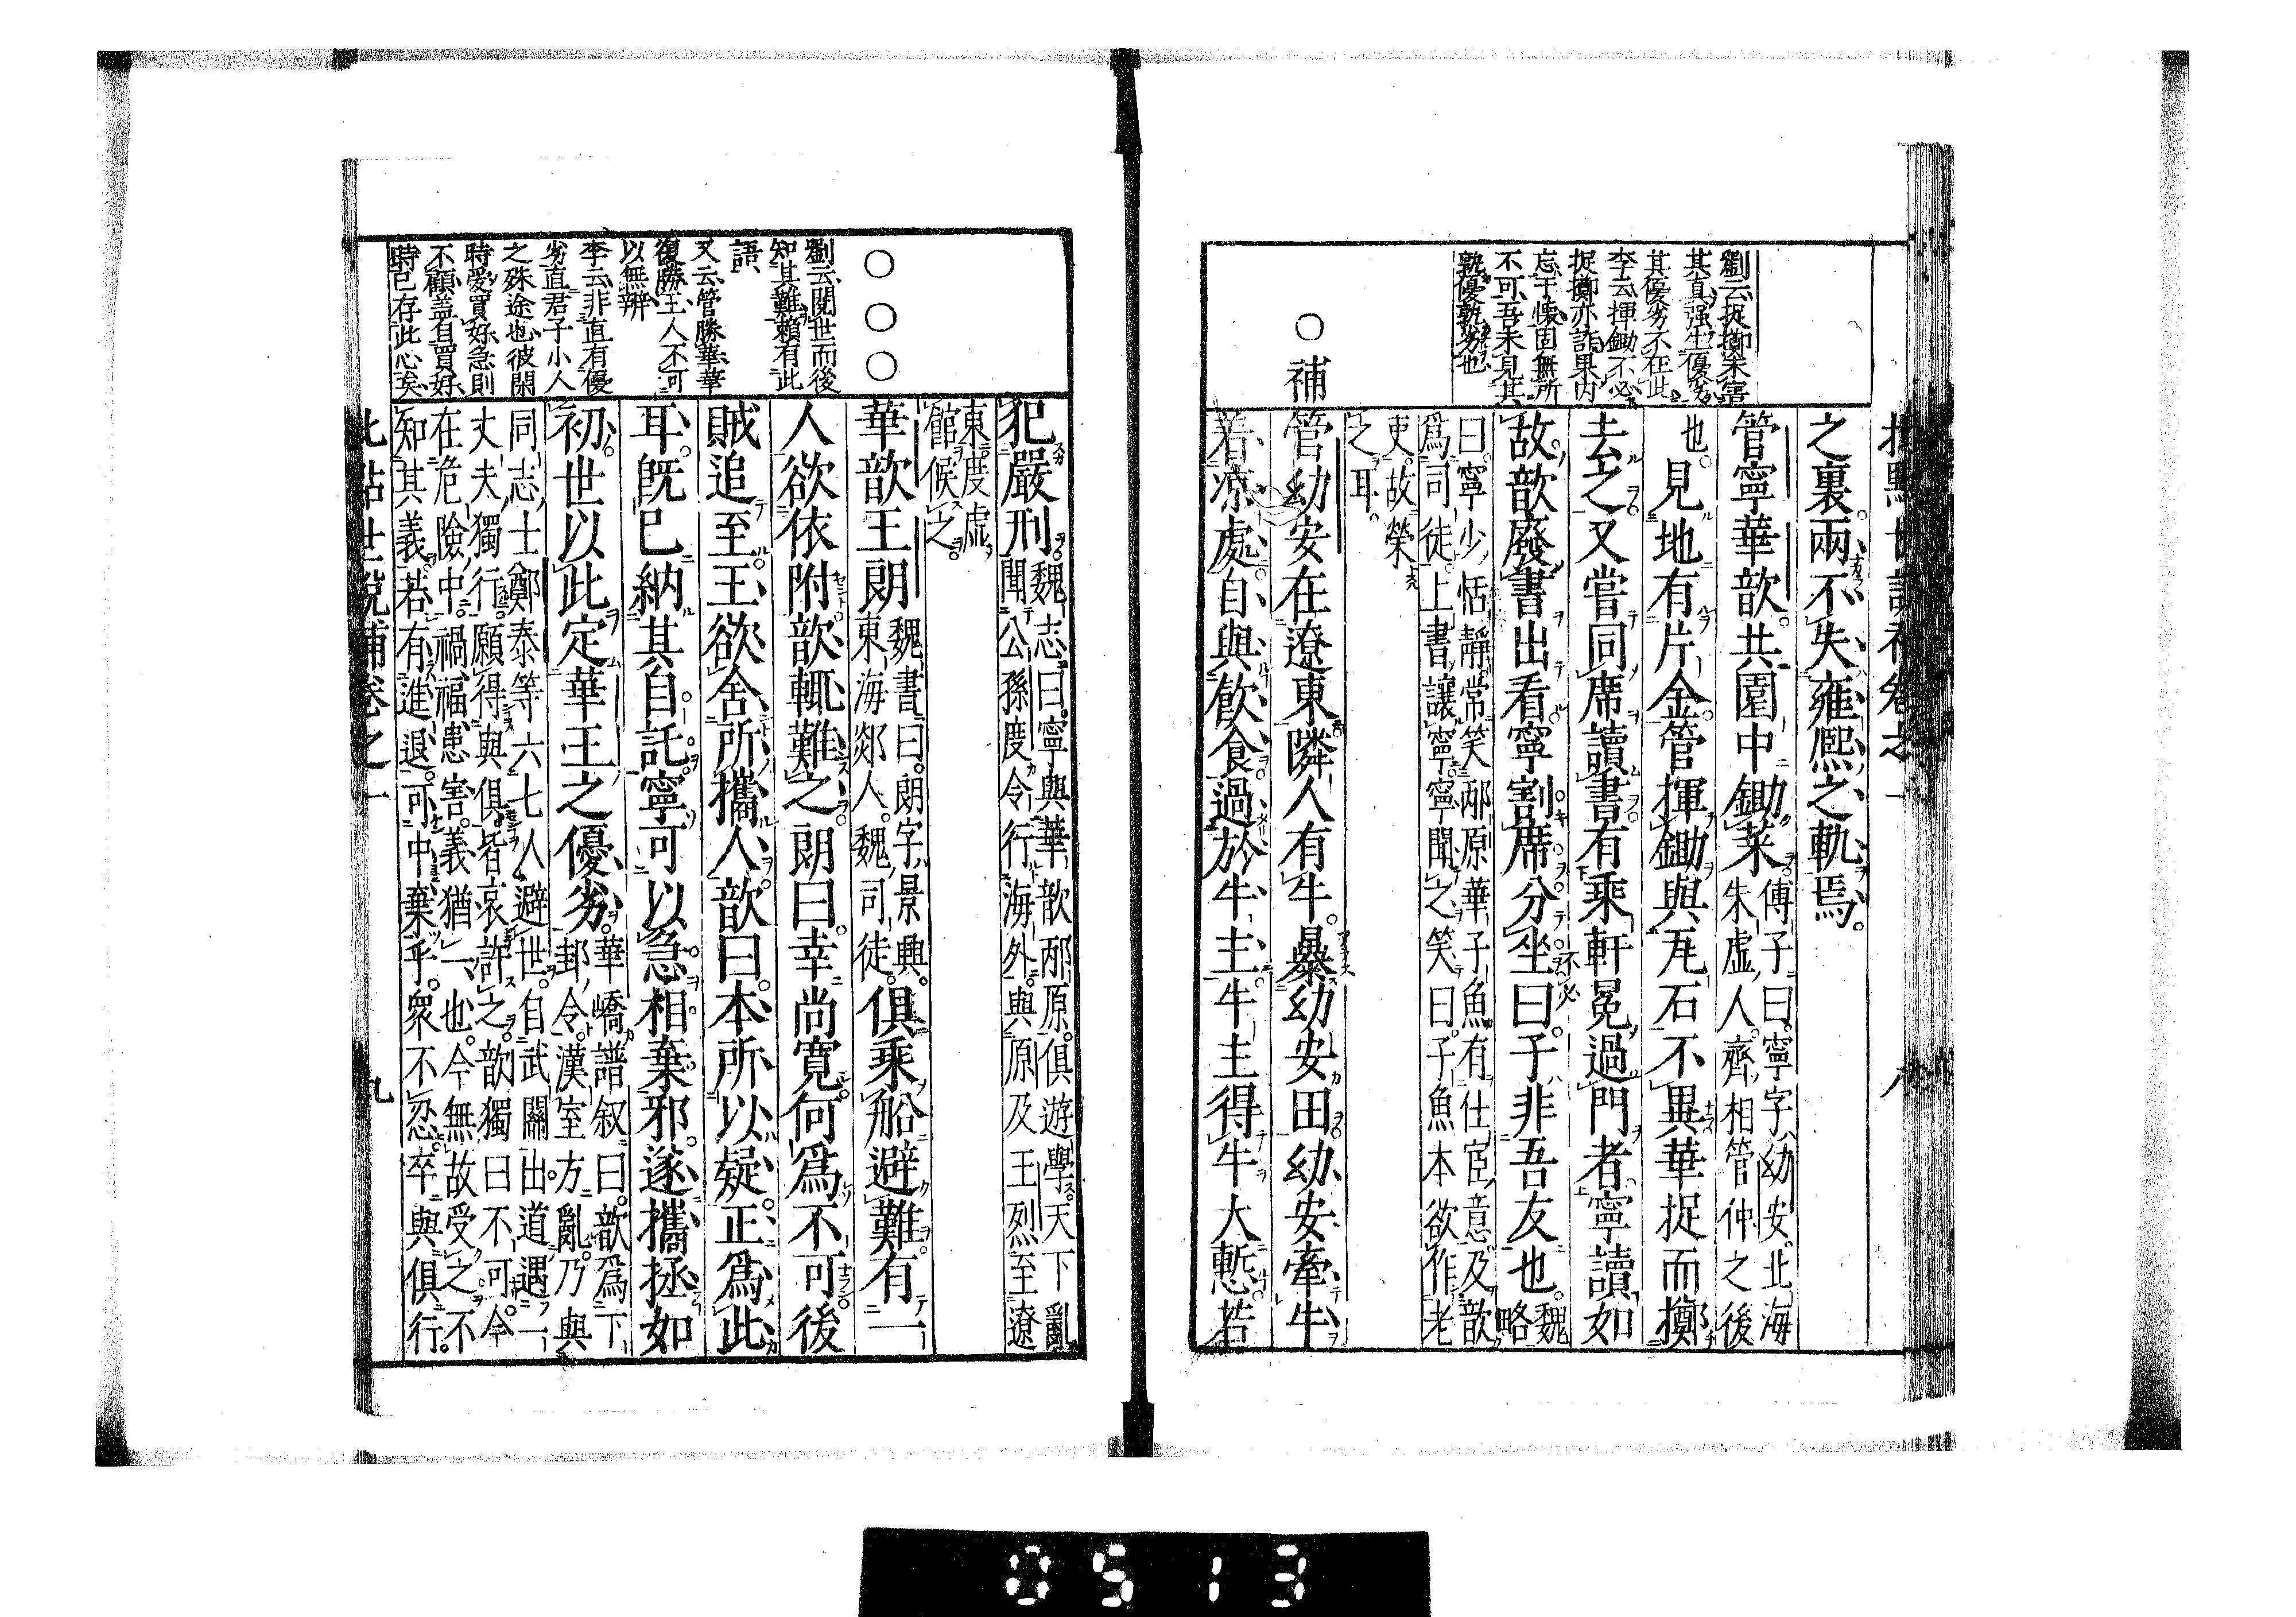 批點世說補卷之一
八
劉云捉擲未害
其真强生優劣
其優劣不在此
李云揮鋤不必
捉擲亦詐果内
忘于懷固無所
不可吾未見其
孰優孰劣也
之裏兩不失雍熙之軌焉。
管寧華歆共園中鋤菜。傅子曰。寧字幼安。北海
朱虛人。齊相管仲之後
也。見地有片金。管揮鋤與瓦石不異華捉而擲
去之又嘗同席讀書有乘軒冕過門者寧讀如
故。歆廢書出看寧割席分坐曰。子非吾友也。魏
略
曰。寧少恬靜。常笑邴原華子魚有仕宦意及歆
爲司徒。上書讓寧。寧聞之笑曰。子魚本欲作老
吏。故榮
之耳。
○補
管幼安在遼東隣人有牛。暴幼安田幼安牽牛
着凉處。自與飲食。過於牛主。牛主得牛大慙若
犯嚴刑。魏志曰。寧與華歆邴原。俱遊學。天下亂
聞公孫度令行海外。與原及王烈至遼
東。度虛
館候之。
○○○
劉云閱世而後
知其難賴有此
語
又云管勝華華
復勝王人不可
以無辨
李云非直有優
劣直君子小人
之殊途也彼閑
時愛買好急則
不顧盖自買好
時已存此心矣
華歆王朗魏書曰。朗字景興。
東海郯人。魏司徒。俱乘船避難有一
人欲依附。歆輒難之。朗曰。幸尚寬何爲不可後
賊追至。王欲舍所攜人。歆曰。本所以疑。正爲此
耳。旣已納其自託。寧可以急相棄邪。遂攜拯如
初。世以此定華王之優劣。華嶠譜叙曰。歆爲下
邽令。漢室方亂。乃與
同志士鄭泰等六七人避世。自武關出。道遇一
丈夫獨行。願得與俱。皆哀許之。歆獨曰不可。今
在危險中。禍福患害。義猶一也。今無故受之。不
知其義。若有進退。可中棄乎。衆不忍。卒與俱行。
批點世說補卷之一
九
0513